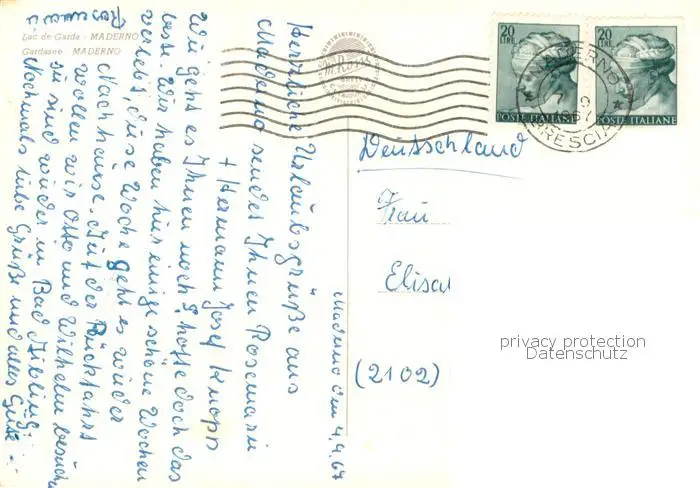 Lac de Garda - MADERNO
Gardasee - MADERNO
Herrliche Urlaubsgrüße aus
Maderno sendet Ihnen Rosemarie
+ Hermann Josef Knopp
Wie geht es Ihnen noch?, hoffe doch das
beste. Wir haben hier einige schöne Wochen
verlebt, diese Woche geht es wieder
Nachhause. Auf der Rückfahrt
wollen wir Otto und Wilhelm besuchen
sie sind wieder in Bad Aibling.
Nochmals liebe Grüße und alles Gute
Maderno den 4.9.67
20
LIRE
POSTE ITALIANE
20
LIRE
POSTE ITALIANE
MADERNO
BRESCIA
Deutschland
Frau
Elisa
(2102)
privacy protection
Datenschutz